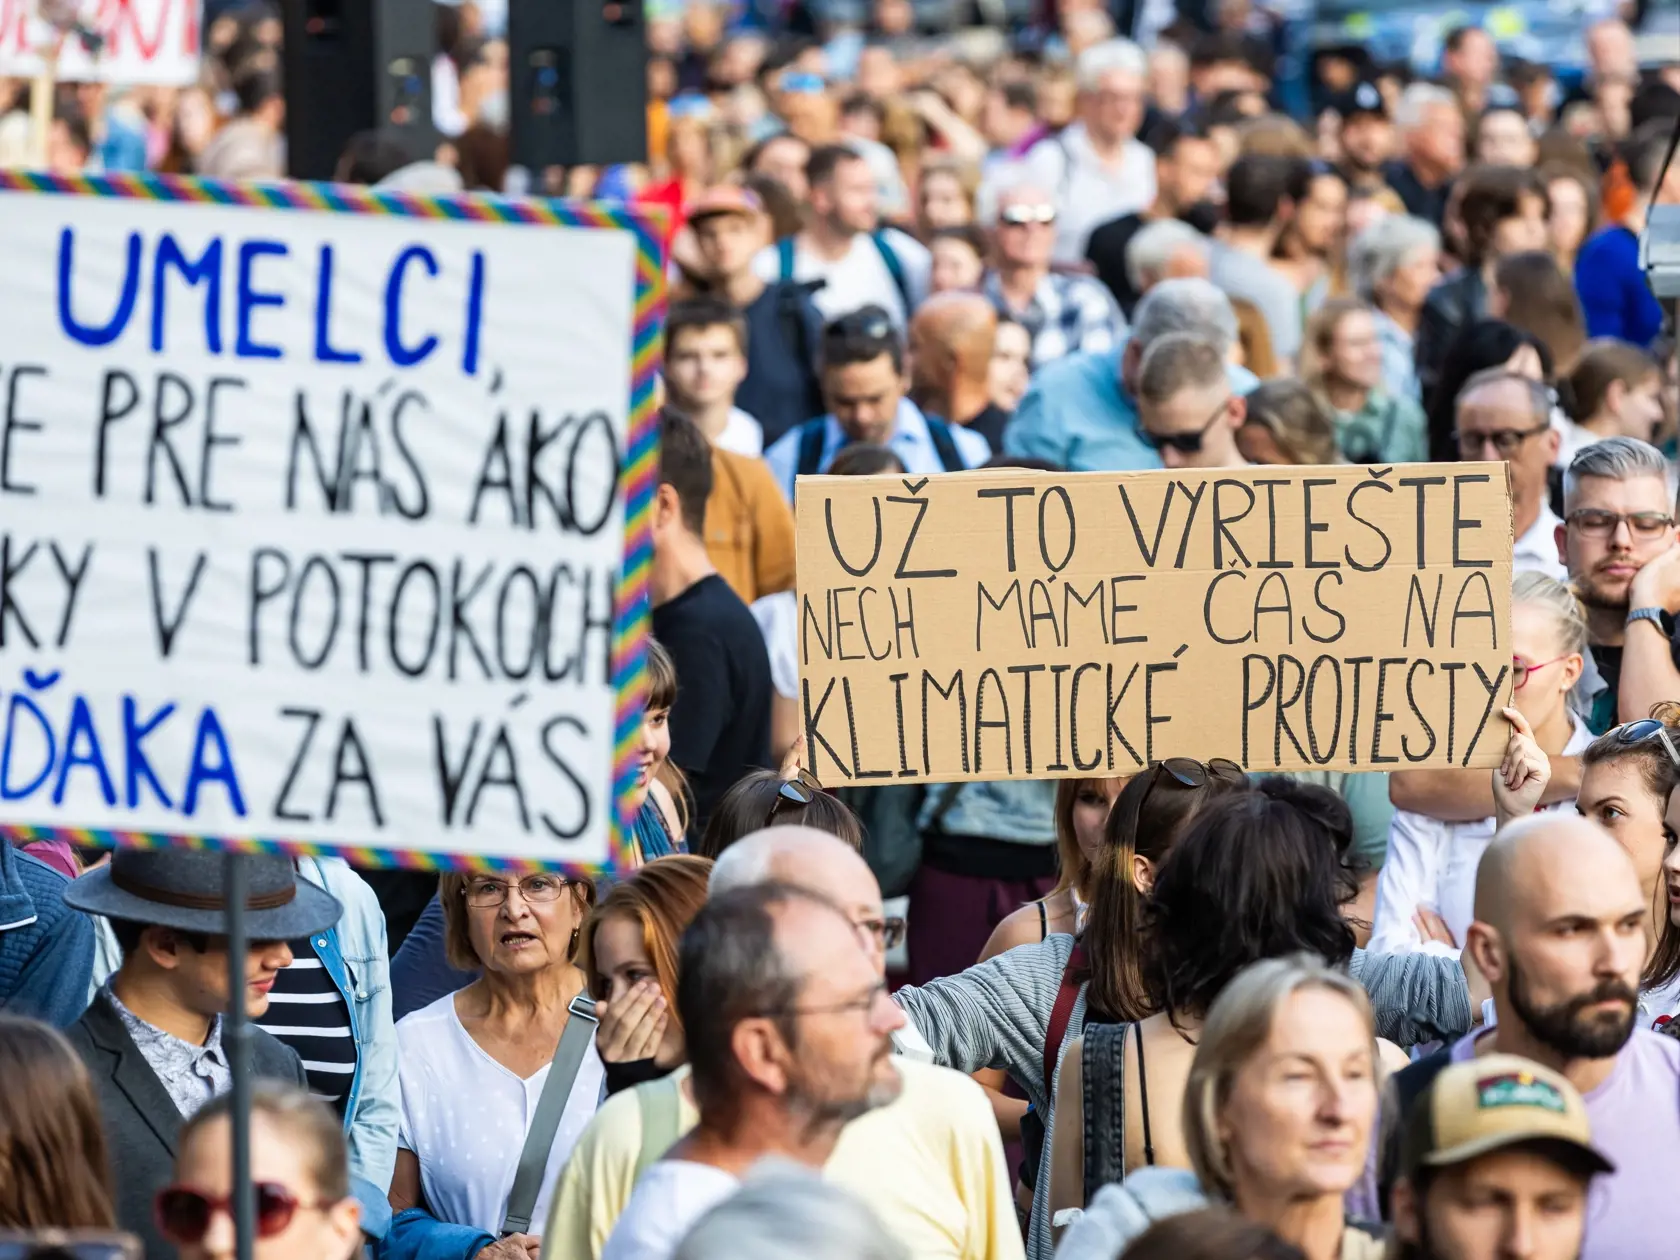 UMELCI,
E PRE NÁS AKO
KY V POTOKOCH
ĎAKA ZA VÁS
UŽ TO VYRIEŠTE
NECH MÁME ČAS NA
KLIMATICKÉ PROTESTY